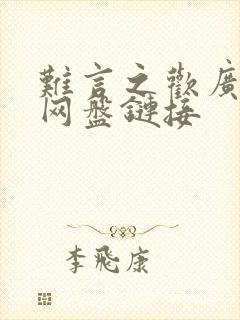 難言之歡廣
网盤鏈接
李飛康